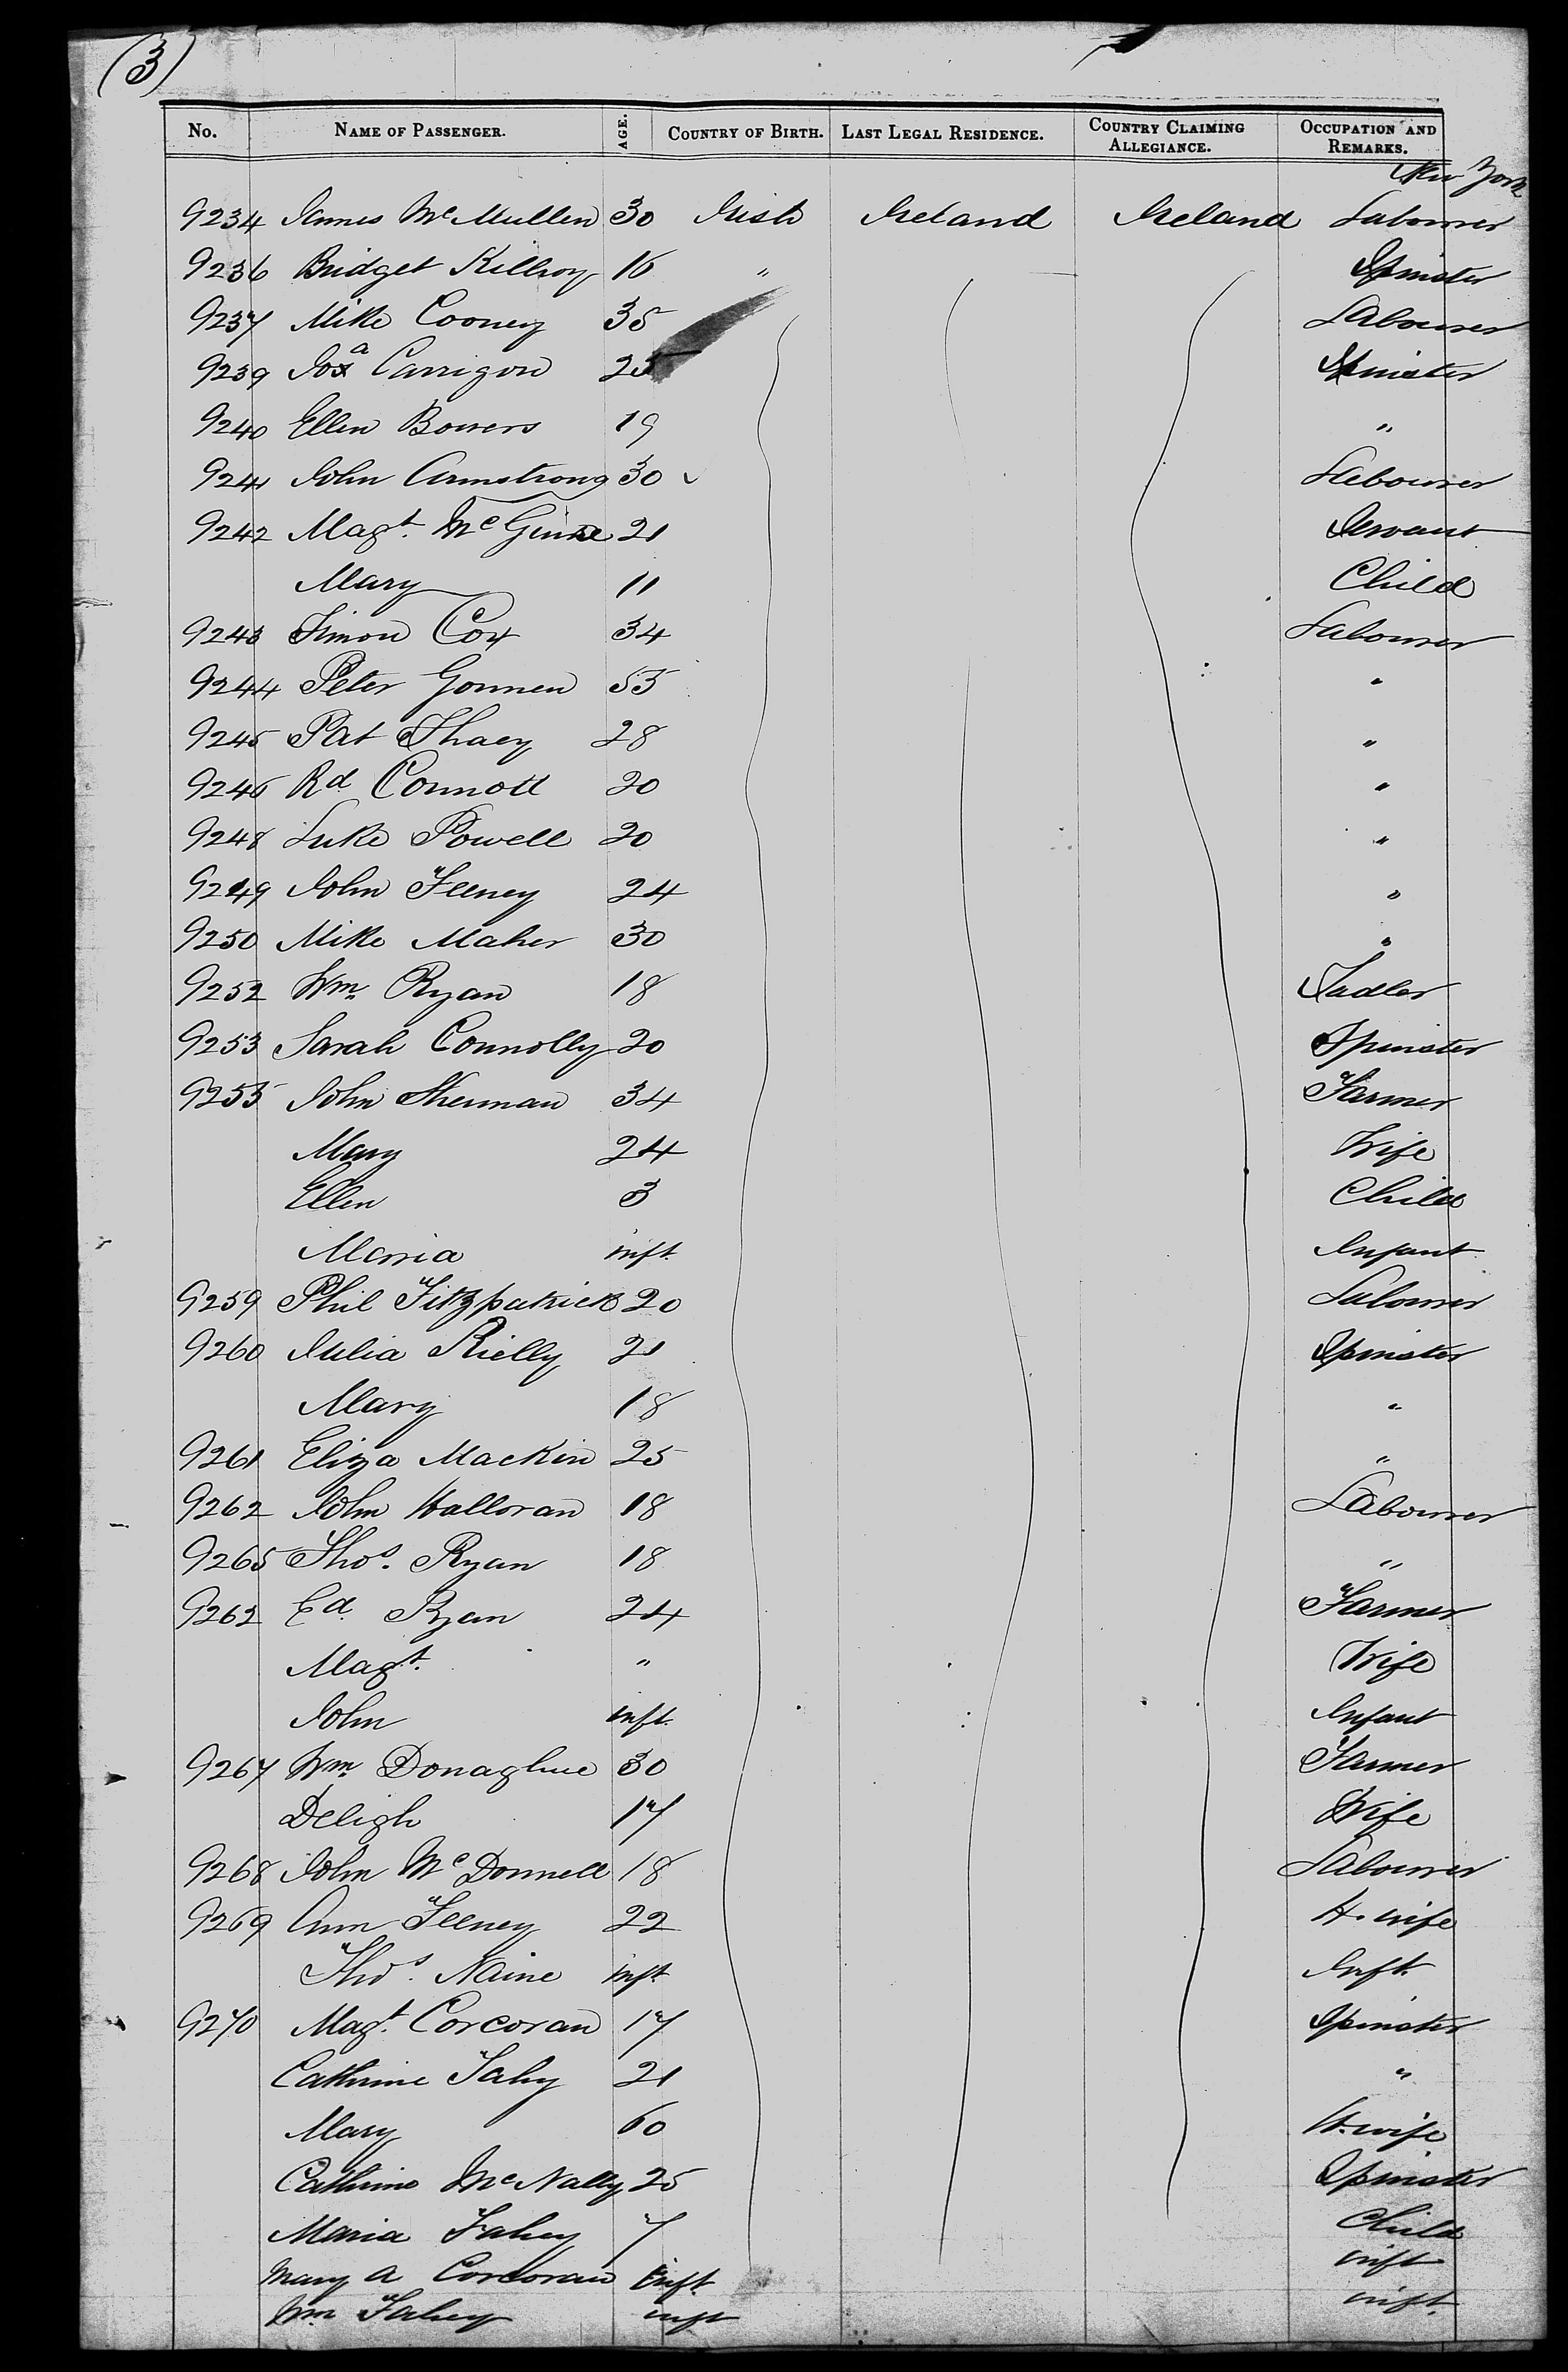 (3)
No. NAME OF PASSENGER. AGE. COUNTRY OF BIRTH. LAST LEGAL RESIDENCE. COUNTRY CLAIMING ALLEGIANCE. OCCUPATION AND REMARKS.
New York
9234 James McMullen 30 Irish Ireland Ireland Labourer
9236 Bridget Killroy 16 " Spinster
9237 Mike Cooney 35 Labourer
9239 Carrigan 25 Spinster
9240 Ellen Bowers 19 "
9241 John Armstrong 30 Labourer
9242 Magt. McGinne 21 Servant
Mary 11 Child
9243 Simon Cox 34 Labourer
9244 Peter Gonnen 55 "
9245 Pat 28 "
9246 Rd Connott 20 "
9248 Luke Powell 20 "
9249 John Feeney 24 "
9250 Mike Maher 30 "
9252 Wm. Ryan 18 Sadler
9253 Sarah Connolly 20 Spinster
9255 John Sherman 34 Farmer
Mary 24 Wife
Ellen 3 Child
Maria inft. Infant
9259 Phil Fitzpatrick 20 Labourer
9260 Julia Rielly 21 Spinster
Mary 18 "
9261 Eliza Mackin 25 "
9262 John Halloran 18 Labourer
9265 Thos. Ryan 18 "
9262 Ed. Ryan 24 Farmer
Magt. " Wife
John inft. Infant
9267 Wm. Donaghue 30 Farmer
Deligh 17 Wife
9268 John McDonnell 18 Labourer
9269 Ann Feeney 22 H. wife
Thos. Naine inft Inft.
9270 Magt. Corcoran 17 Spinster
Cathrine Fahy 21 "
Mary 60 H. wife
Cathrine McNally 25 Spinster
Maria Fahey 7 Child
Mary A Corcoran inft. inft
Wm Fahey inft inft.